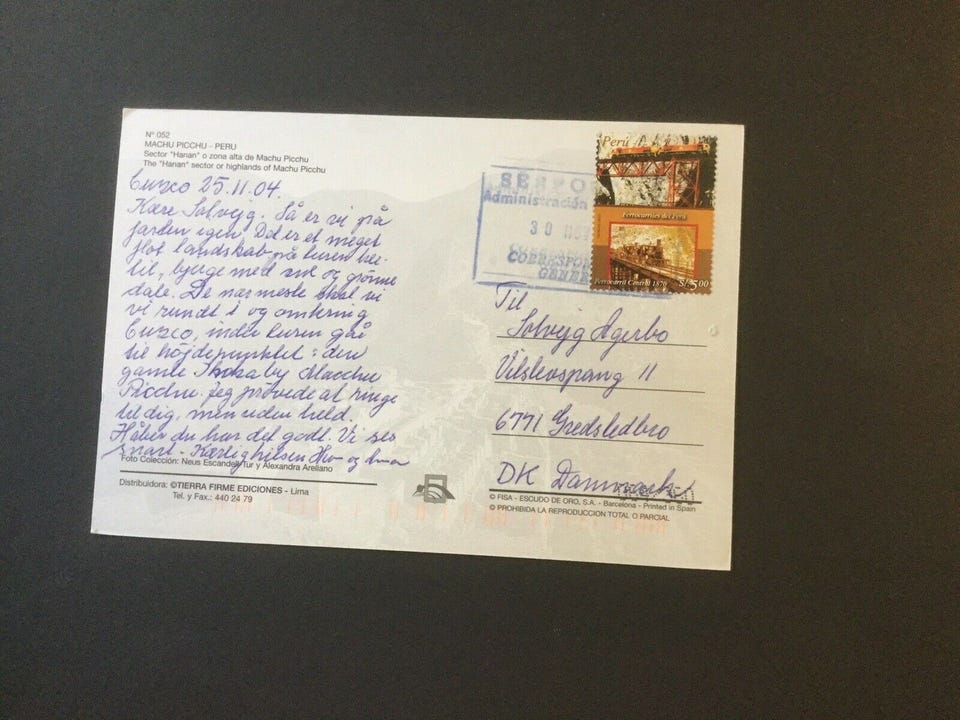 Nº 052
MACHU PICCHU - PERU
Sector "Hanan" o zona alta de Machu Picchu
The "Hanan" sector or highlands of Machu Picchu
Cuzco 25.11.04.
Kære Solvejg. Så er vi på
farten igen. Det er et meget
flot landskab på turen her-
til, bjerge med sne og grønne
dale. De nærmeste skal vi
vi rundt i og omkring
Cuzco, inden turen går
til højdepunktet: den
gamle Inkaby Macchu
Picchu. Jeg prøvede at ringe
til dig, men uden held.
Håber du har det godt. Vi ses
snart - Kærlig hilsen og
Foto Colección: Neus Escandell Tur y Alexandra Arellano
Distribuidora: ©TIERRA FIRME EDICIONES - Lima
Tel. y Fax.: 440 24 79
SERPO
Administración
30 NOV
CORRESPON
GENER
Perú
Ferrocarriles del Perú
Ferrocarril Central 1870
S/.5.00
Til
Solvejg Agerbo
Vilslevspang 11
6771 Gredstedbro
DK Danmark
© FISA - ESCUDO DE ORO, S.A. - Barcelona - Printed in Spain
© PROHIBIDA LA REPRODUCCION TOTAL O PARCIAL